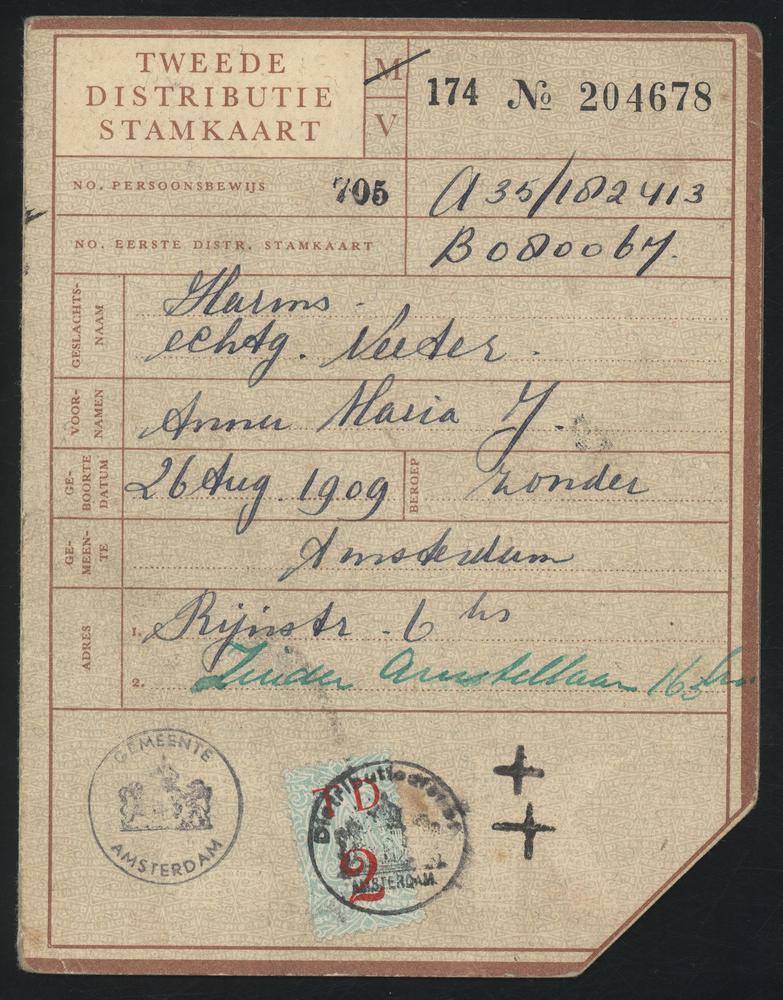 TWEEDE
DISTRIBUTIE
STAMKAART
M
V
174 № 204678
NO. PERSOONSBEWIJS 705 A 35/182413
NO. EERSTE DISTR. STAMKAART B080067.
GESLACHTS-
NAAM
Harms -
echtg. Veeter.
VOOR-
NAMEN
Anna Maria J.
GE-
BOORTE
DATUM
26 Aug. 1909
BEROEP
zonder
GE-
MEEN-
TE
Amsterdam
ADRES
1. Rijnstr. 6 hs
2. Zuider Amstellaan 163 hs.
GEMEENTE
AMSTERDAM
TD
2
Distributiedienst
AMSTERDAM